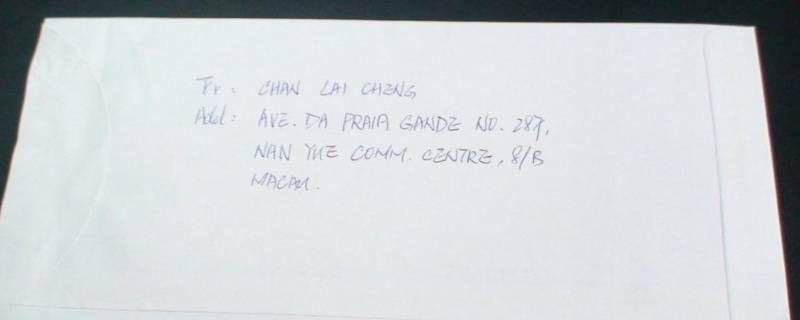 Fr: CHAN LAI CHENG
Add: AVE. DA PRAIA GANDE NO. 287,
NAN YUE COMM. CENTRE, 8/B
MACAU.